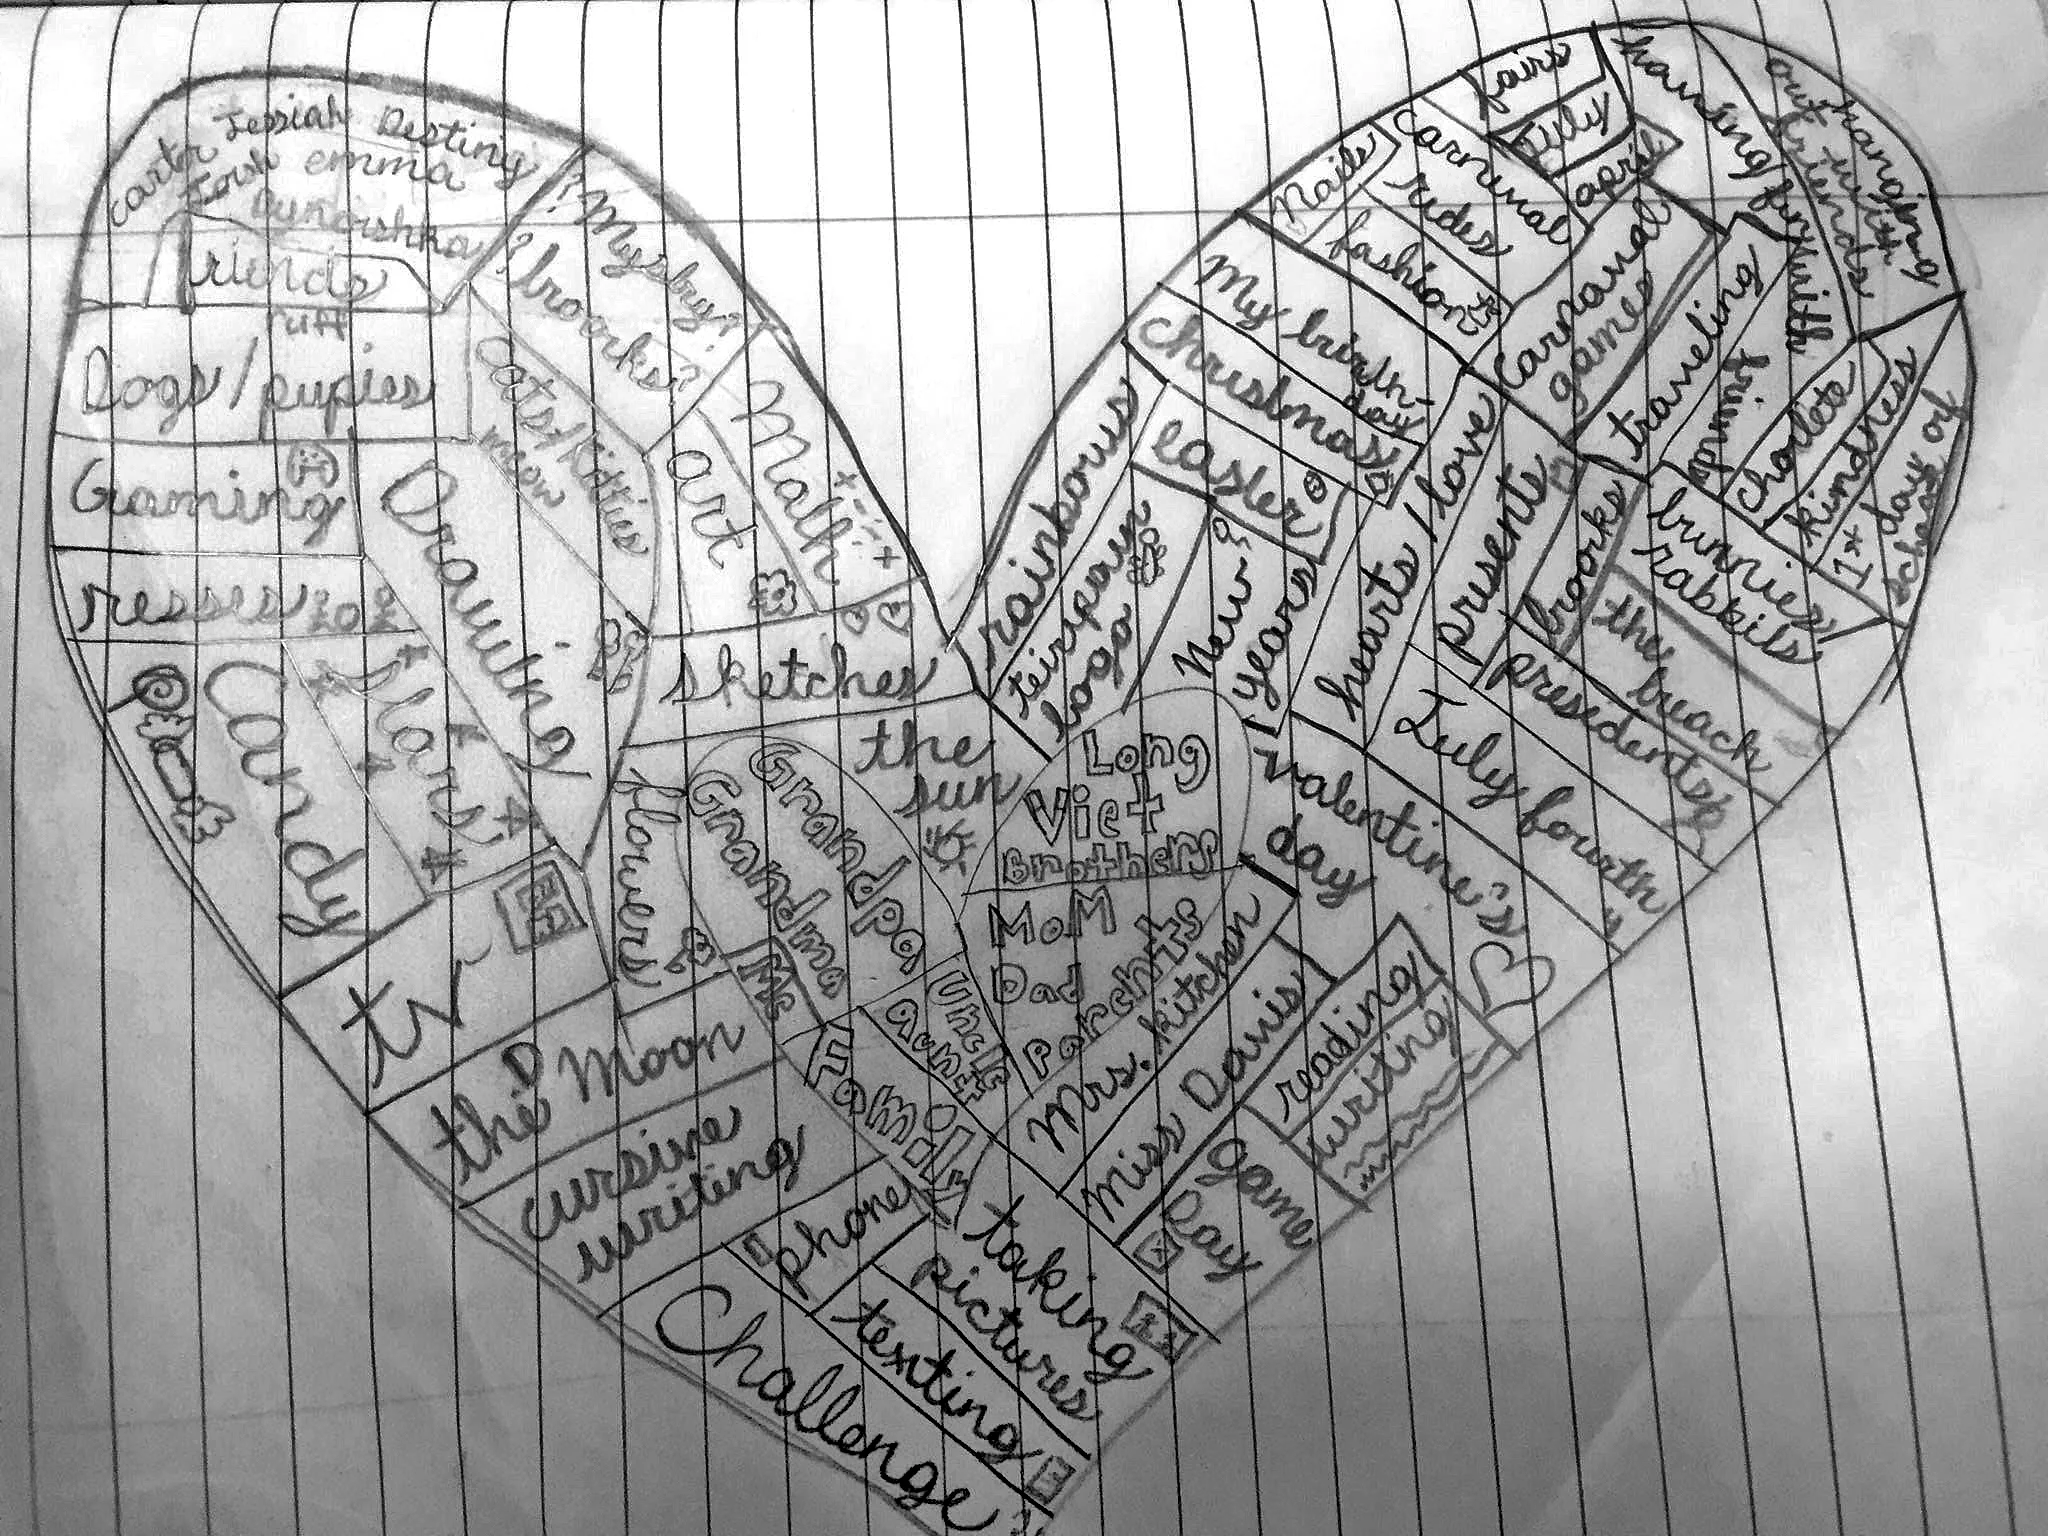 Carter Jessiah Destiny
Josh emma
friends
ruff
Dogs/pupies
Gaming
resses
Candy
stars
Drawing
cats/kitties
meow
? Mysbry?
? boorks?
Math
art
sketches
the
sun
flowers
tv
the Moon
cursive
writing
phone
texting
Challenge
taking
pictures
Grandpa
Grandma
Me
Uncle
Aunt
Family
Long
Viet
Brothers
MoM
Dad
Parents
Mrs. kitchen
Miss Davis
reading
writing
game
Day
valentine's
day
July fourth
presidents
the beach
bunnies/
rabbits
boorks
presents
hearts/love
New
years
easter
christmas
My birth-
day
rainbows
fashion
Nails
carnival
rides
fairs
July
april
Carnaval
games
traveling
friends
having fun with
hanging
out with
friends
kindness
1st day of